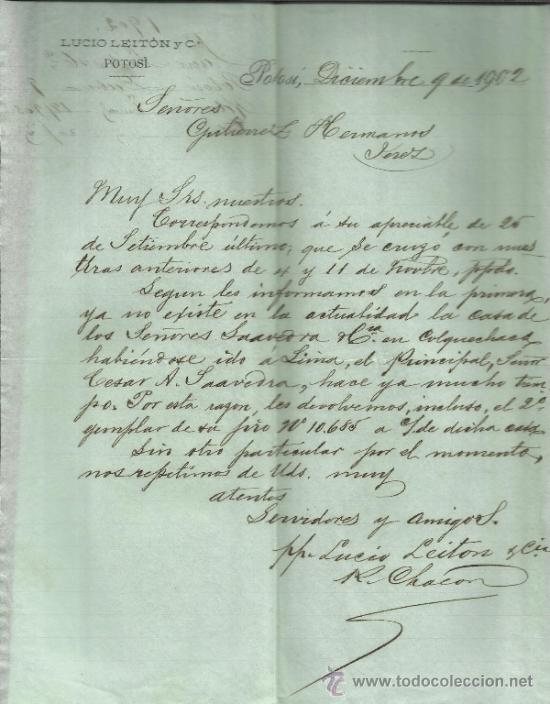 LUCIO LEITÓN y Cª
POTOSÍ.
1902
Potosí, Diciembre 9 de 1902
Señores
Gutierrez Hermanos
Jerez
Muy Srs. nuestros.
Correspondemos á su apreciable de 25
de Setiembre último, que se cruzó con nues
tras anteriores de 4 y 11 de Novbre, ppdo.
Segun les informamos en la primera,
ya no existe en la actualidad la casa de
los Señores Saavedra & Cia en Colquechaca
habiéndose ido a Lima, el Principal, Señor
Cesar A. Saavedra, hace ya mucho tiem
po. Por esta razon, les devolvemos, incluso, el 2º
ejemplar de su jiro Nº 10.685 a c/ de dicha casa
Sin otro particular por el momento,
nos repetimos de Uds. muy
atentos
Servidores y amigos.
pp. Lucio Leiton & Cia
R. Chacon
todocoleccion
www.todocoleccion.net